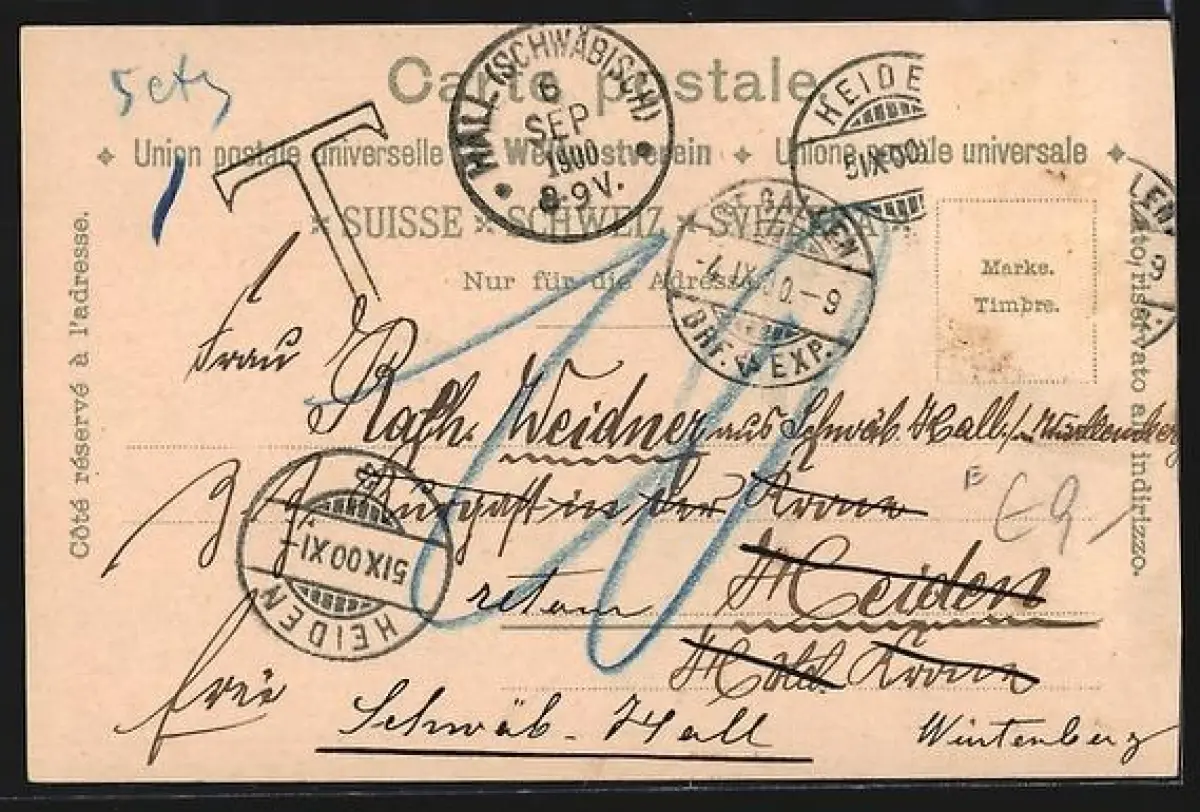 5 cts
T
Carte postale
Union postale universelle Weltpostverein ✦ Unione postale universale ✦
SUISSE SCHWEIZ SVIZZERA
Nur für die Adresse.
HALL (SCHWÄBISCH)
6
SEP
1900
8-9V.
HEIDE
5 IX 00
ST. GALLEN
-4.IX.00.-9
BRF. EXP.
LEN
9
Marke.
Timbre.
Côté réservé à l'adresse.
Lato riservato all' indirizzo.
10
Frau
Rath. Weidner aus Schwäb. Hall
Kurgast in der Krone
Heiden
retour
Hôtel Krone
HEIDEN
5 IX 00 XI-
frei
Schwäb. Hall Würtenberg
E